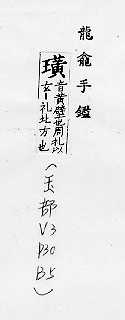 龍龕手鑑
璜 音黃璧也周礼以
玄丨礼北方也
(玉部 V3 P30 B5)